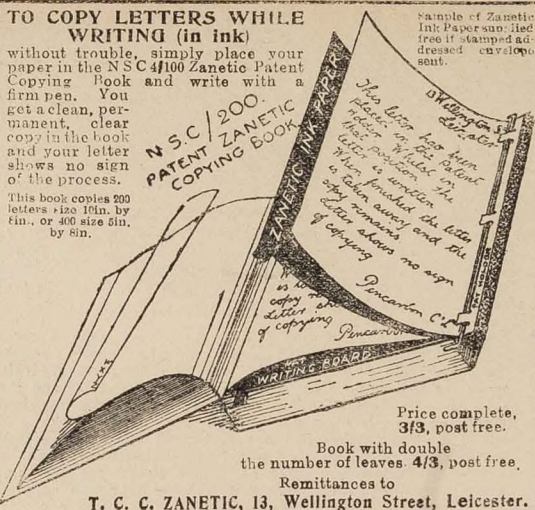 TO COPY LETTERS WHILE
WRITING (in ink)
without trouble, simply place your
paper in the N S C 4/100 Zanetic Patent
Copying Book and write with a
firm pen. You
get a clean, per-
manent, clear
copy in the book
and your letter
shows no sign
of the process.
This book copies 200
letters size 10in. by
8in., or 400 size 5in.
by 8in.
Sample of Zanetic
Ink Paper supplied
free if stamped ad-
dressed envelope
sent.
N.S.C/200.
PATENT ZANETIC
COPYING BOOK
ZANETIC INK PAPER
13 Wellington St
Leicester
This letter has been
placed in the Patent
Holder. Whilst in
that position the
letter is written
When finished the letter
is taken away and the
copy remains
Letter shows no sign
of copying
Pencarbon Co
copy
Letter
of copying
Pencarbon
WRITING BOARD
Price complete,
3/3, post free.
Book with double
the number of leaves. 4/3, post free.
Remittances to
T. C. C. ZANETIC, 13, Wellington Street, Leicester.